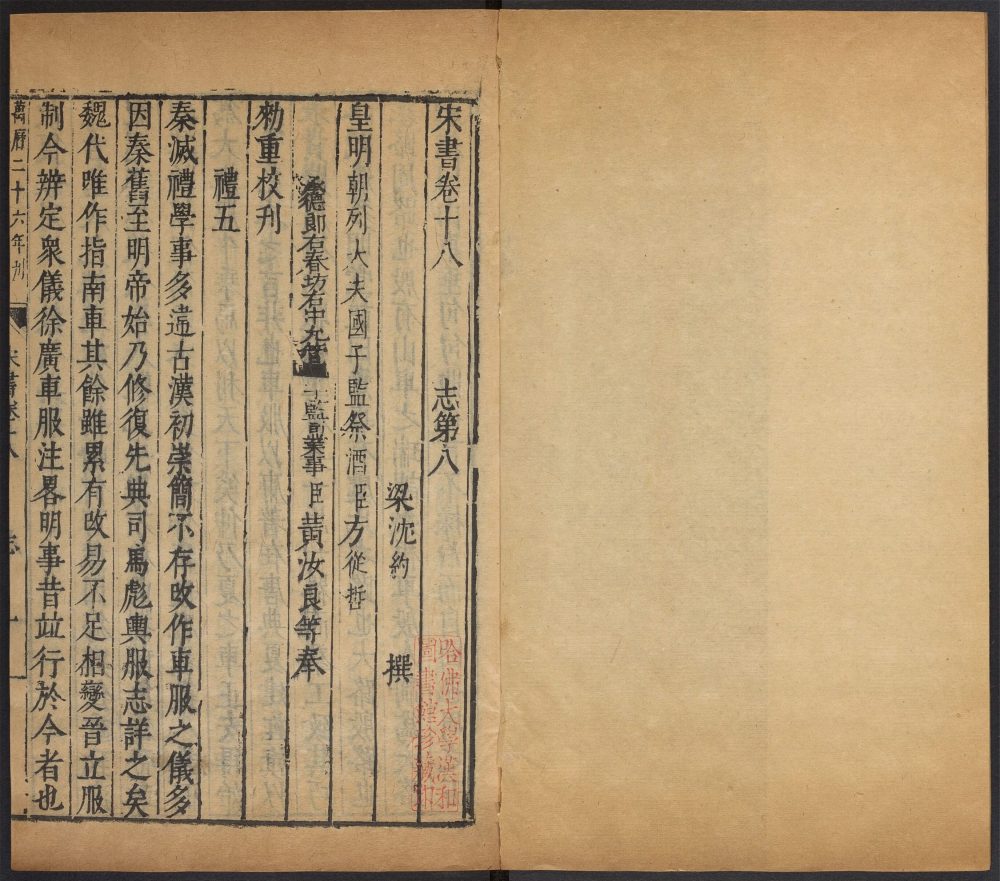 宋書卷十八 志第八
梁沈約 撰
皇明朝列大夫國子監祭酒臣方從哲
承德郎右春坊右中允管國子監司業事臣黃汝良等奉
勑重校刊
禮五
秦滅禮學事多違古漢初崇簡不存改作車服之儀多
因秦舊至明帝始乃修復先典司馬彪輿服志詳之矣
魏代唯作指南車其餘雖累有改易不足相變晉立服
制令辨定衆儀徐廣車服注畧明事昔竝行於今者也
萬曆二十六年刊
宋書卷十八 志 一
哈佛大學漢和
圖書館珍藏印